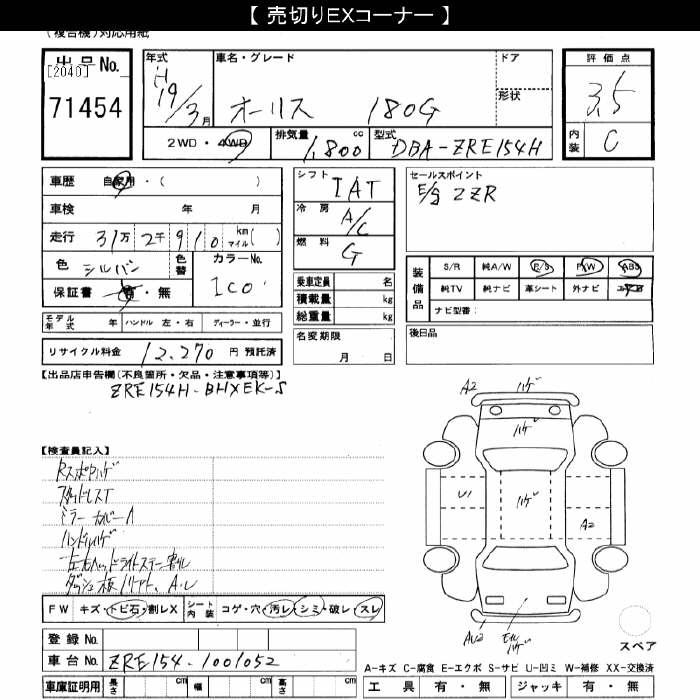 【 売切りEXコーナー 】
(複合機)対応用紙
出品No.
[2040]
71454
年式
H19/3月
車名・グレード
オーリス 180G
ドア
形状
評価点
3.5
内装
C
2WD・4WD
排気量
1,800 cc
型式
DBA-ZRE154H
車歴 自家用・( )
車検 年 月
走行 31万 2千 9 1 0 km マイル( )
色 シルバー
色替
カラーNo.
1C0
保証書 有・無
モデル年式 年 ハンドル 左・右 ディーラー・並行
リサイクル料金 12,270 円 預託済
シフト
IAT
冷房
A/C
燃料
G
乗車定員 名
積載量 kg
総重量 kg
名変期限
月 日
セールスポイント
E/S 2ZR
装備品
S/R 純A/W E/S P/W ABS
純TV 純ナビ 革シート 外ナビ エアB
ナビ型番:
後日品
【出品店申告欄(不良箇所・欠品・注意事項等)】
ZRE154H-BHXEK-S
【検査員記入】
Rスポハゲ
スタッドレスT
ミラーカバーA
ハンドルハゲ
左右ヘッドライトステー割れ
FW キズ・トビ石・割レX
シート内装 コゲ・穴・汚レ・シミ・破レ・スレ
登録No.
車台No. ZRE154-1001052
車庫証明用 長さ cm 幅 cm 高さ cm
A2 ハゲ
ハゲ
U1 ハゲ A2
スペア
A-キズ C-腐食 E-エクボ S-サビ U-凹ミ W-補修 XX-交換済
工具 有・無 ジャッキ 有・無